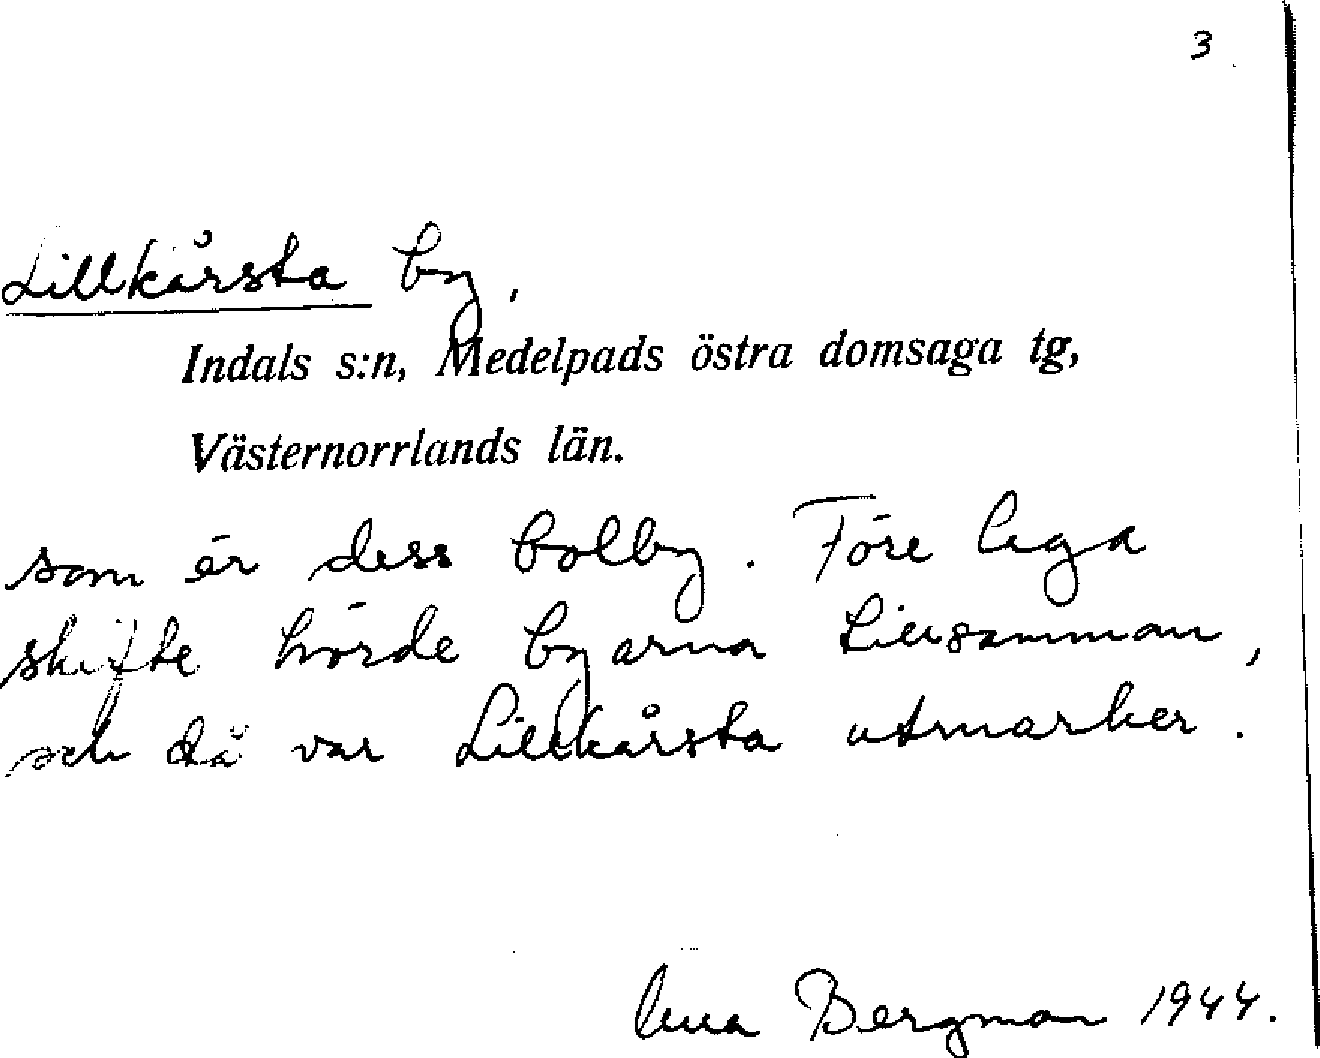 3
Lillkårsta by,
Indals s:n, Medelpads östra domsaga tg,
Västernorrlands län.
som är dess bolby. Före laga
skifte hörde byarna tillsamman,
och då var Lillkårsta utmarker.
Bergman 1944.